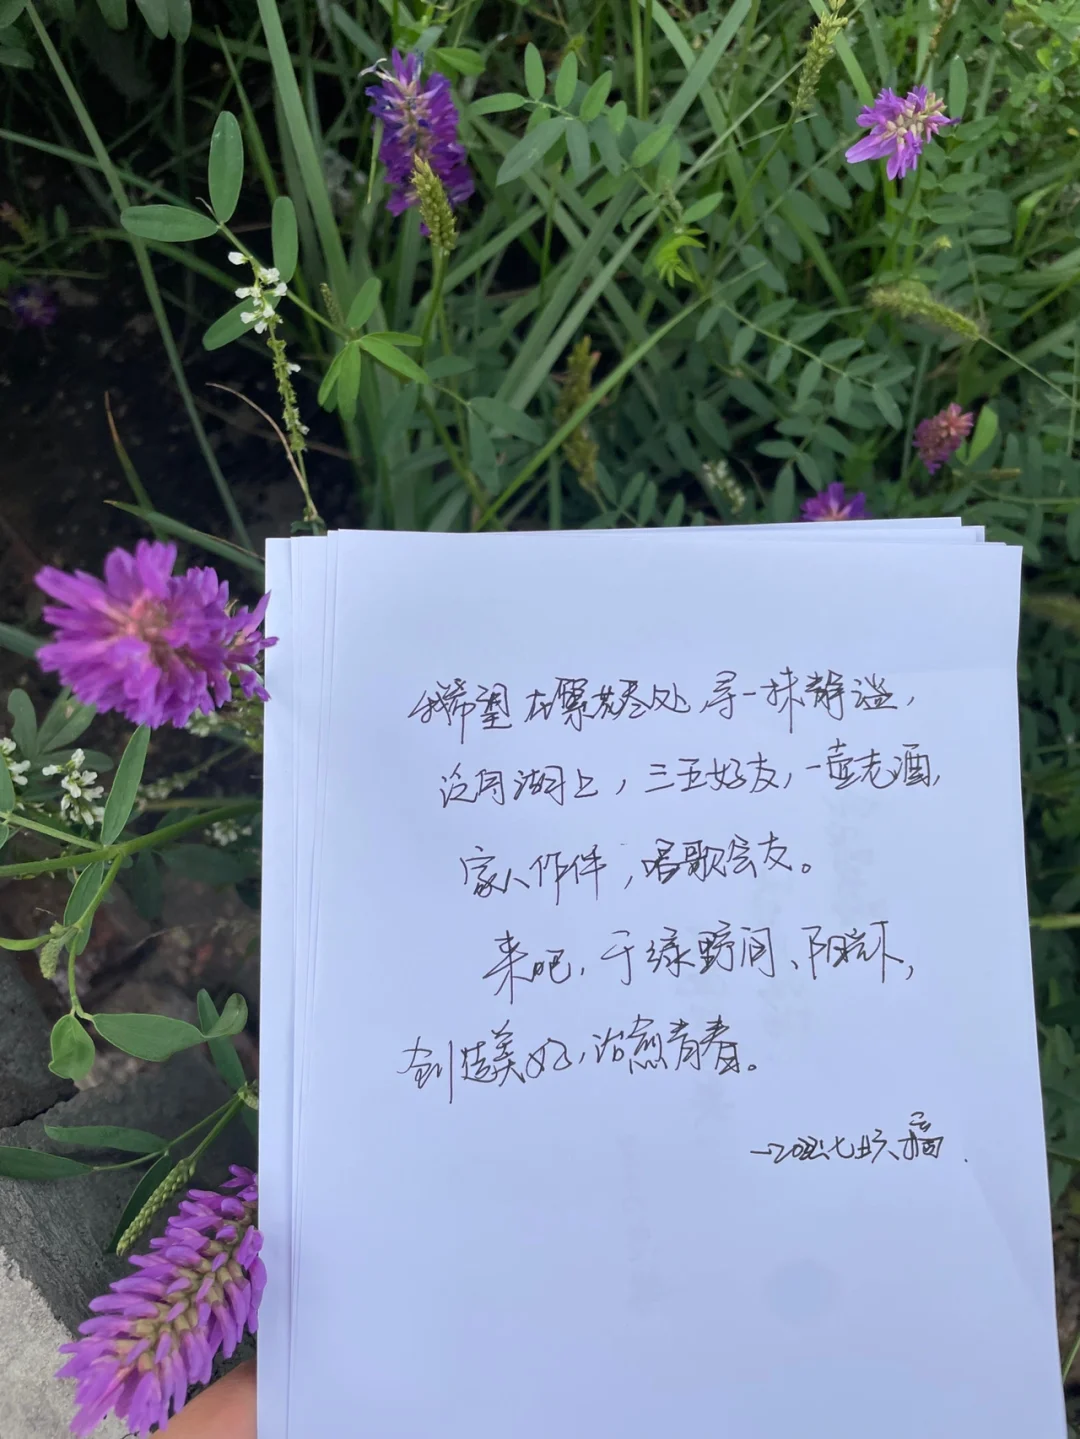 我希望在繁花尽处,寻一抹静谧,
泛月湖上,三五好友,一壶老酒,
家人作伴,唱歌会友。
来吧,于绿野间、阳光下,
创造美好,治愈青春。